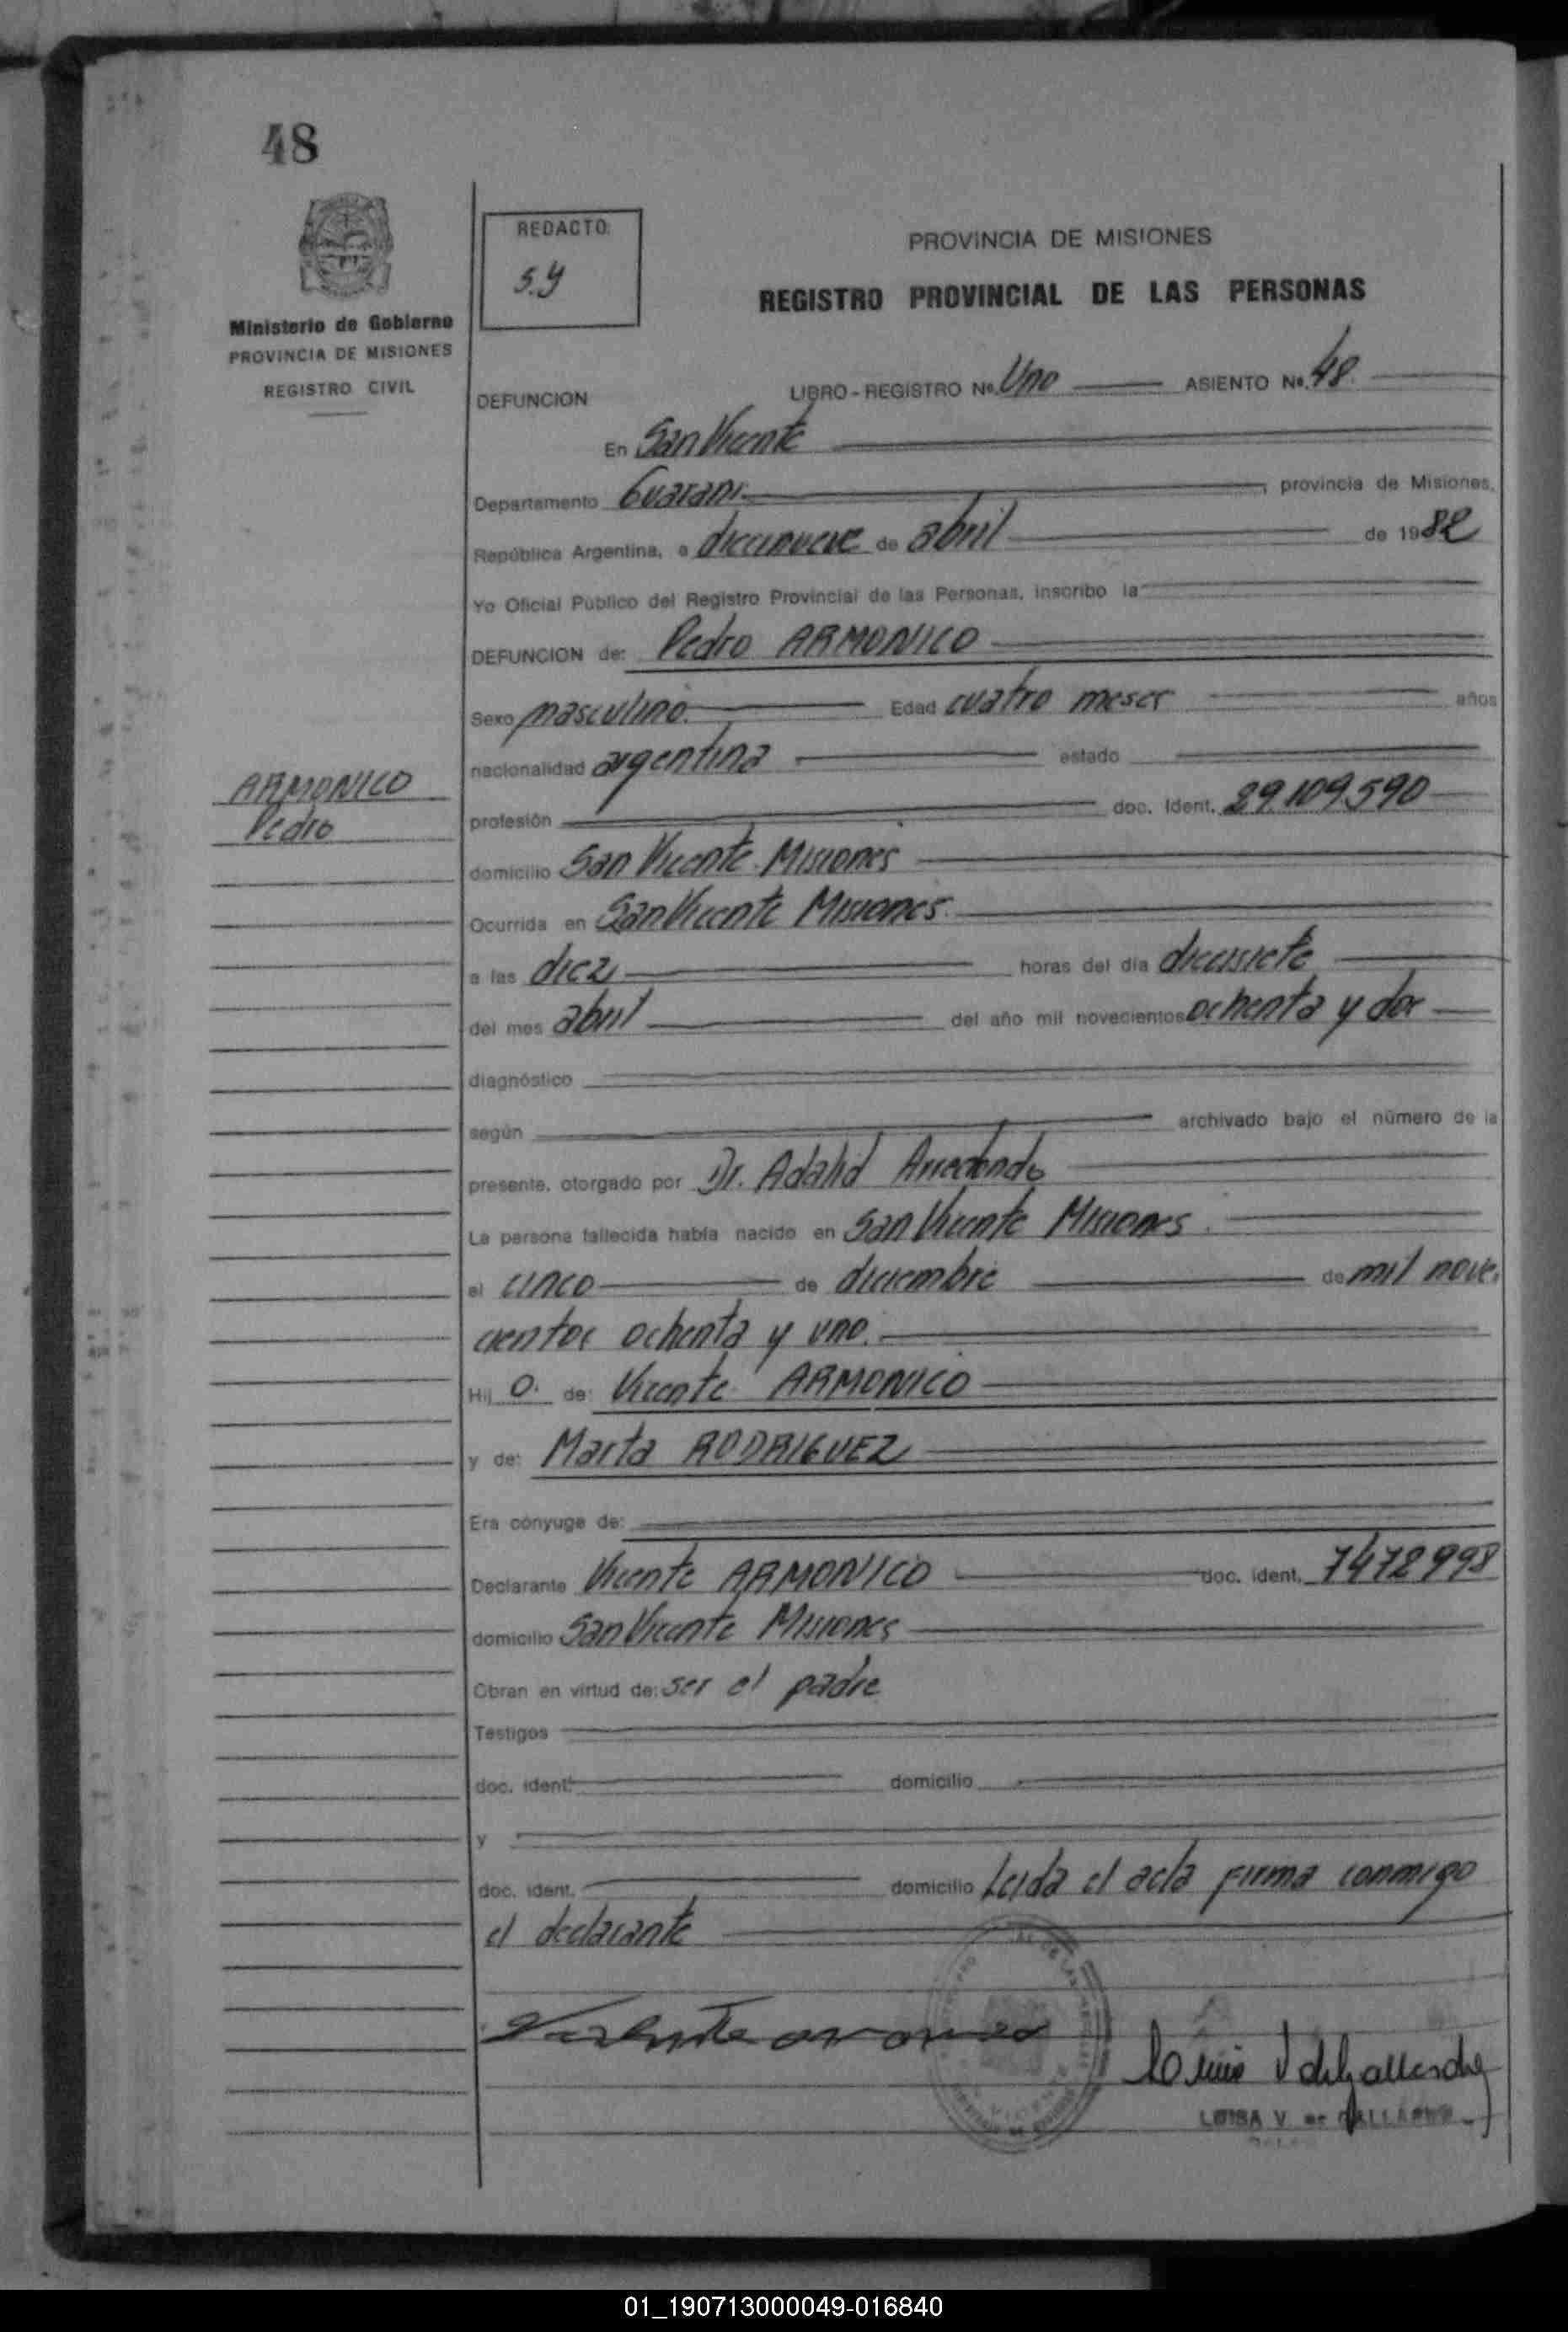 48
REDACTO:
S.Y
Ministerio de Gobierno
PROVINCIA DE MISIONES
REGISTRO CIVIL
PROVINCIA DE MISIONES
REGISTRO PROVINCIAL DE LAS PERSONAS
DEFUNCION LIBRO-REGISTRO No. Uno ASIENTO No. 48.
En San Vicente
Departamento Guarani. , provincia de Misiones,
República Argentina, a diecinueve de abril de 1982
Yo Oficial Público del Registro Provincial de las Personas, inscribo la
DEFUNCION de: Pedro ARMONICO
Sexo masculino. Edad cuatro meses años
nacionalidad argentina estado
ARMONICO
Pedro
profesión doc. Ident. 29.109.590
domicilio San Vicente. Misiones
Ocurrida en San Vicente Misiones.
a las diez horas del día diecisiete
del mes abril del año mil novecientos ochenta y dos
diagnóstico
según archivado bajo el número de la
presente, otorgado por Dr. Adalid Arredondo
La persona fallecida había nacido en San Vicente Misiones.
el cinco de diciembre de mil nove.
cientos ochenta y uno.
Hij o. de: Vicente ARMONICO
y de: Marta RODRIGUEZ
Era cónyuge de:
Declarante Vicente ARMONICO doc. ident. 7472998
domicilio San Vicente Misiones
Obran en virtud de: ser el padre
Testigos
doc. ident. domicilio
y
doc. ident. domicilio Leida el acta firma conmigo
el declarante
LUISA V. de
01_190713000049-016840